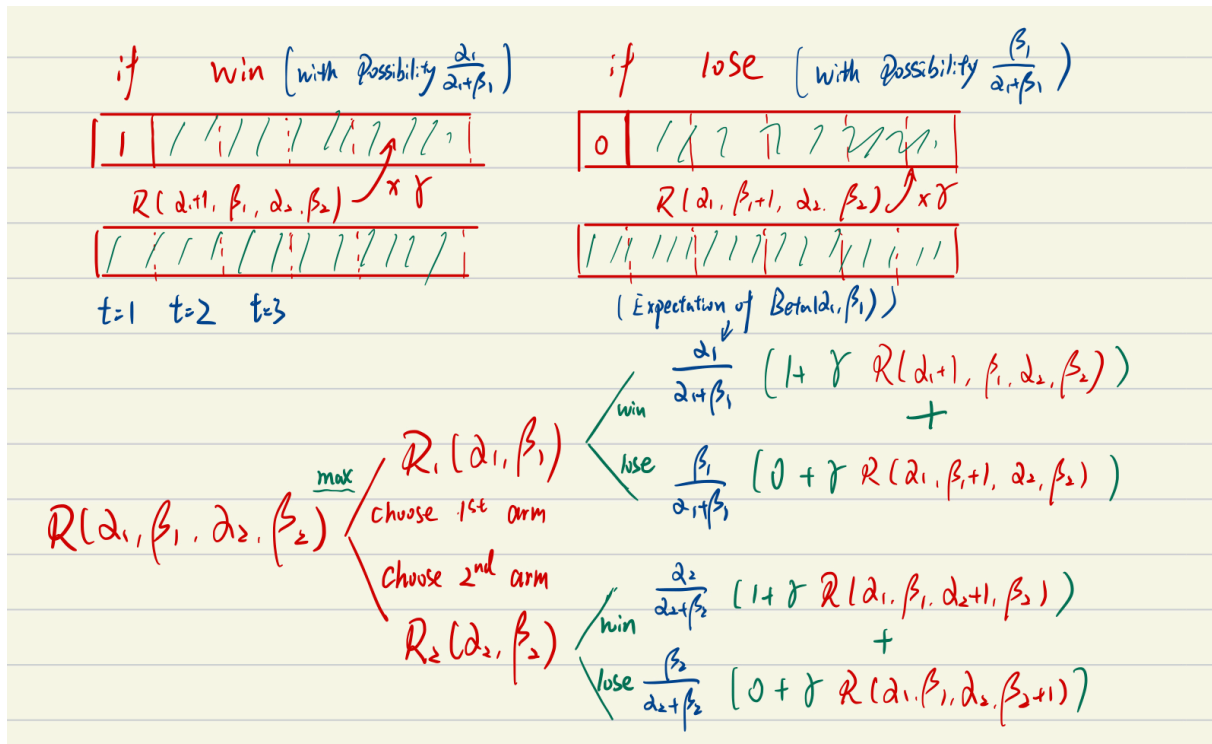 if win (with possibility α₁/(α₁+β₁))
1
R(α₁+1, β₁, α₂, β₂) × γ
t=1 t=2 t=3
if lose (with possibility β₁/(α₁+β₁))
0
R(α₁, β₁+1, α₂, β₂) × γ
(Expectation of Beta(α₁, β₁))
R(α₁, β₁, α₂, β₂)
max
R₁(α₁, β₁)
choose 1st arm
win α₁/(α₁+β₁) (1 + γ R(α₁+1, β₁, α₂, β₂))
+
lose β₁/(α₁+β₁) (0 + γ R(α₁, β₁+1, α₂, β₂))
choose 2nd arm
R₂(α₂, β₂)
win α₂/(α₂+β₂) (1 + γ R(α₁, β₁, α₂+1, β₂))
+
lose β₂/(α₂+β₂) (0 + γ R(α₁, β₁, α₂, β₂+1))